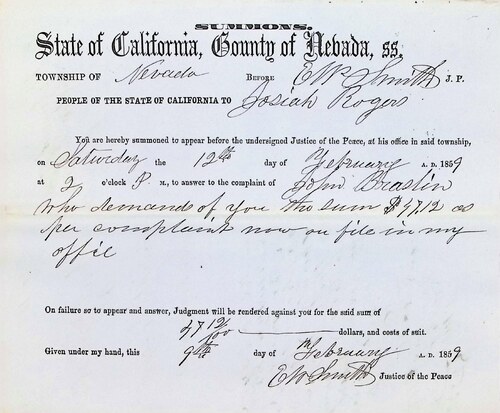 SUMMONS.
State of California, County of Nevada, ss.
TOWNSHIP OF Nevada BEFORE E W Smith J. P.
PEOPLE OF THE STATE OF CALIFORNIA TO Josiah Rogers
You are hereby summoned to appear before the undersigned Justice of the Peace, at his office in said township,
on Saturday the 12th day of February A. D. 1859
at 2 o'clock P M., to answer to the complaint of John
who demands of you the sum $47.12 as
per complaint now on file in my
office
On failure so to appear and answer, Judgment will be rendered against you for the said sum of
47 12/100 dollars, and costs of suit.
Given under my hand, this 9th day of February A. D. 1859
E W Smith Justice of the Peace